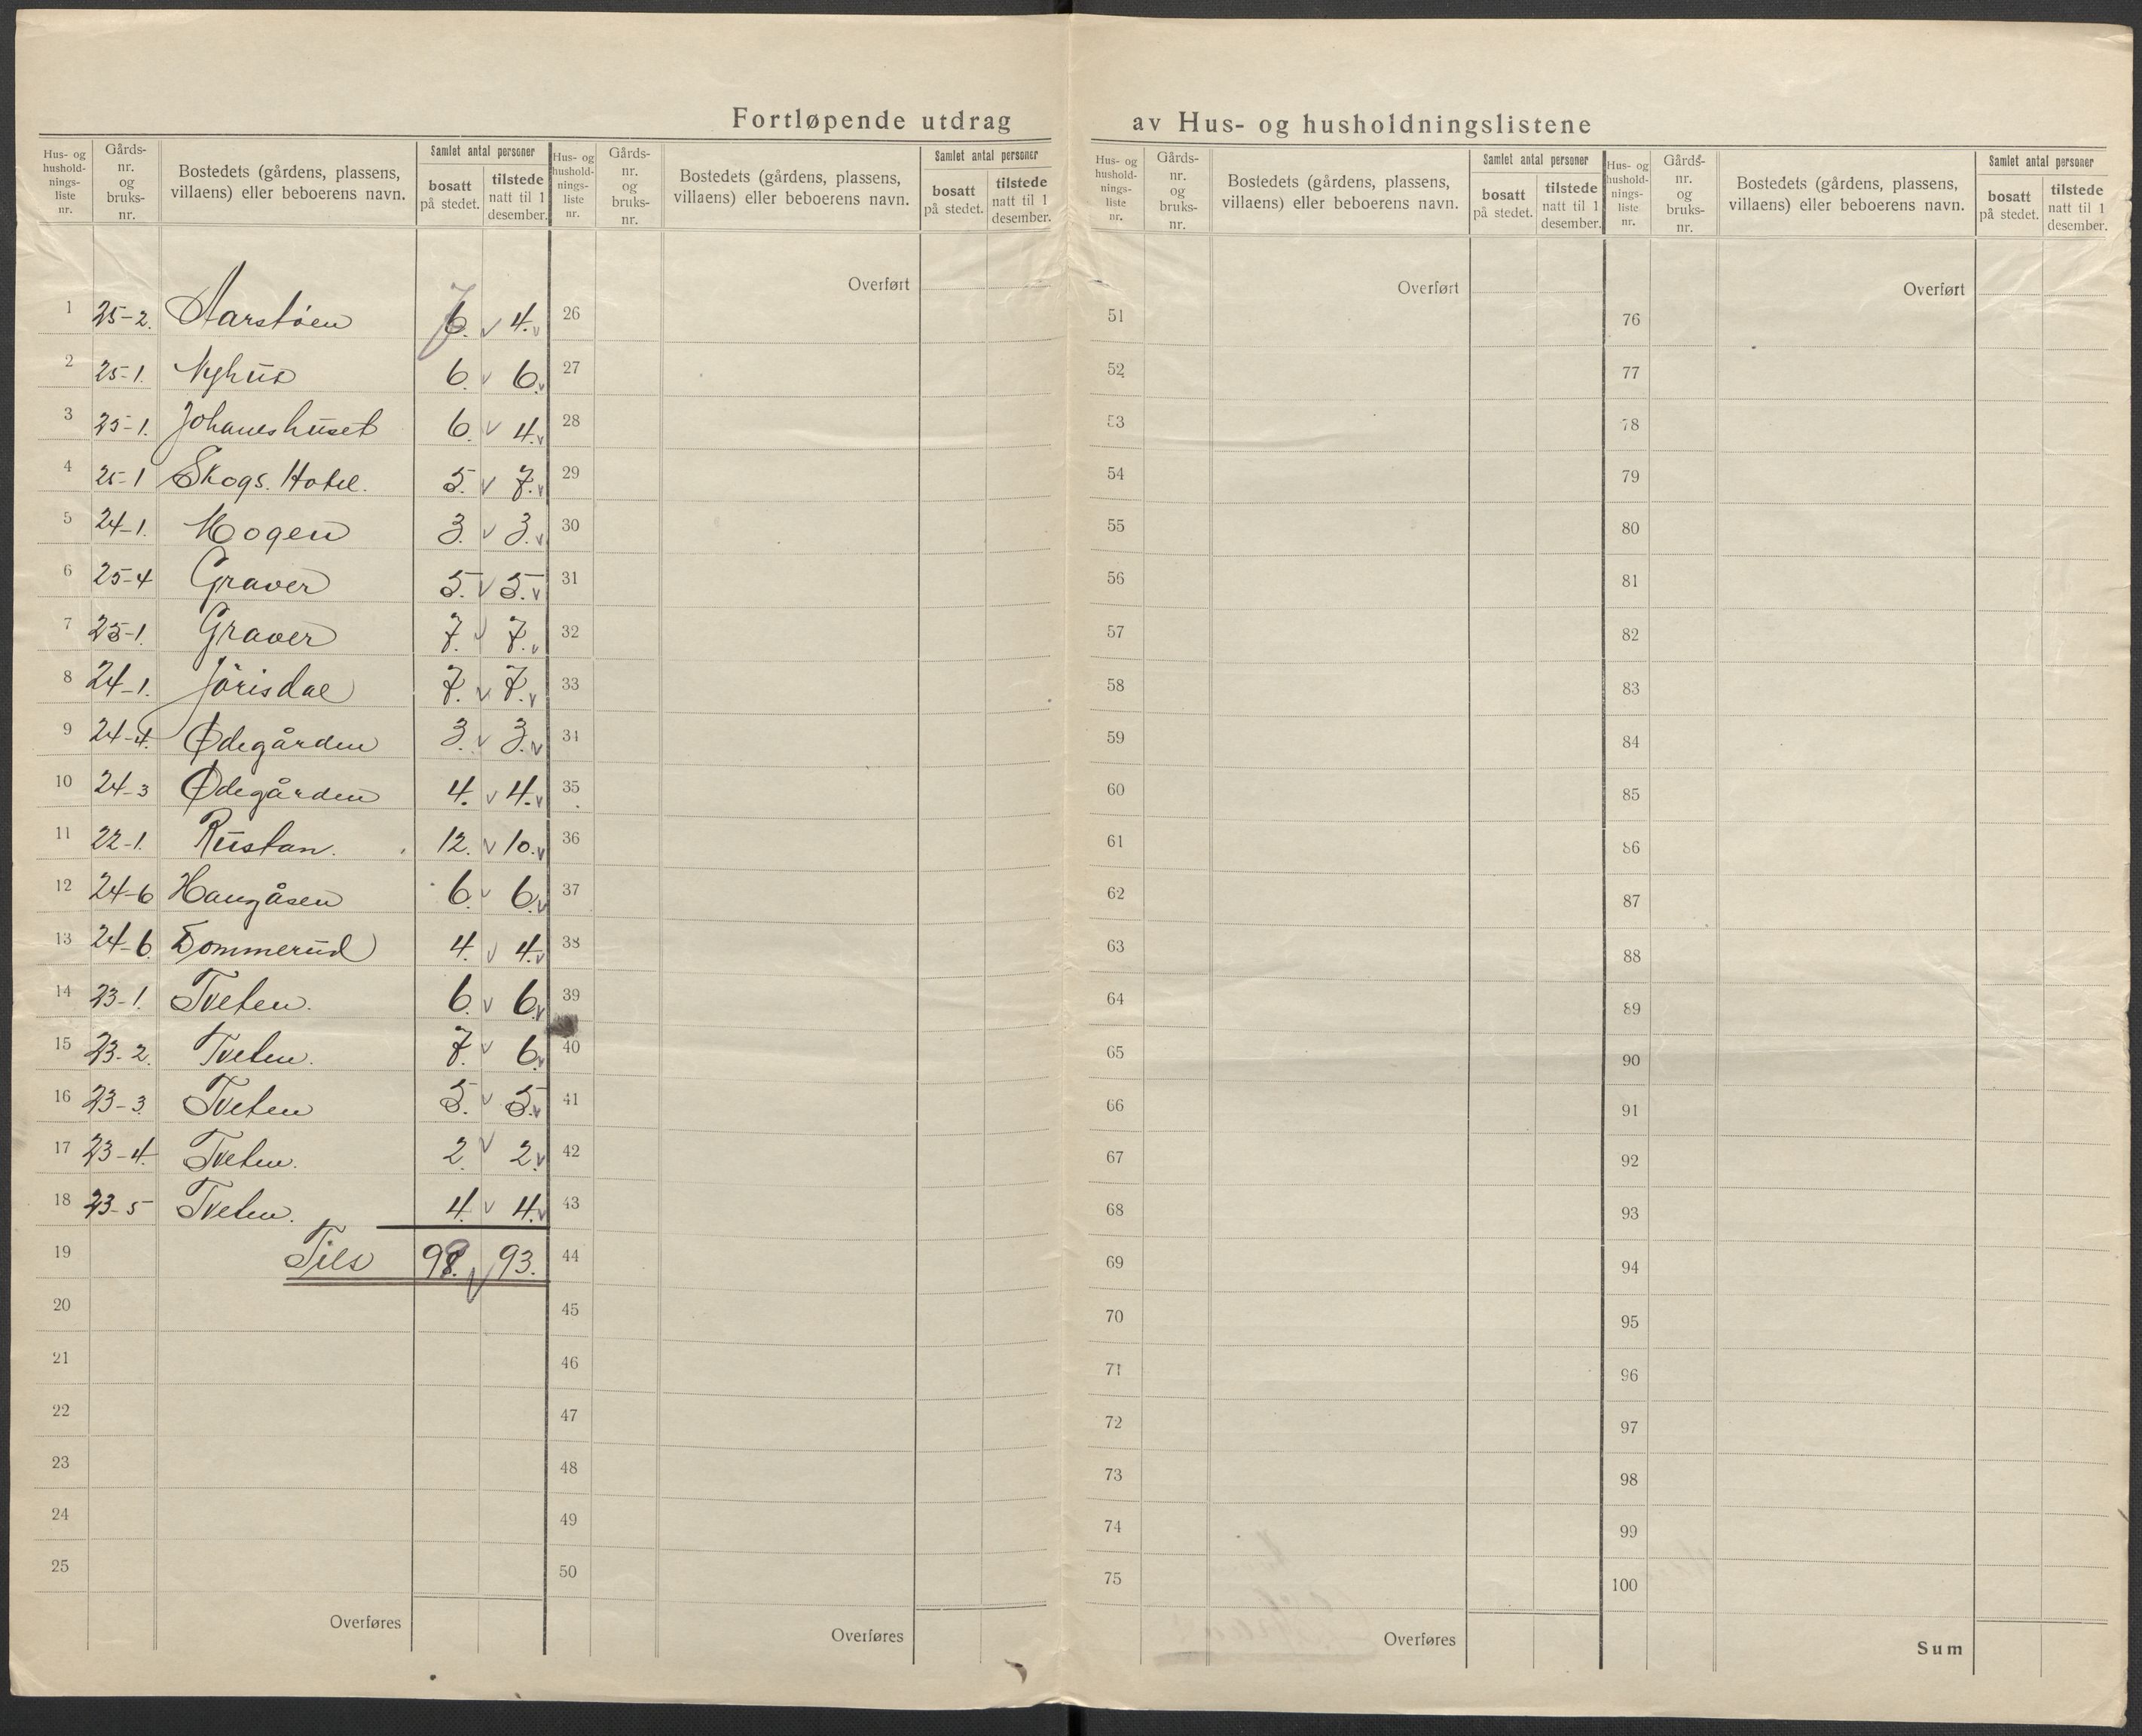 Fortløpende utdrag av Hus- og husholdningslistene
Hus- og hushold-nings-liste nr. | Gårds-nr. og bruks-nr. | Bostedets (gårdens, plassens, villaens) eller beboerens navn. | Samlet antal personer | bosatt på stedet. | tilstede natt til 1 desember.
1 25-2. Aarstöen 7 4.
2 25-1. Nyhus 6. 6.
3 25-1. Johaneshuset 6. 4.
4 25-1 Skogs. Hotel. 5. 7.
5 24-1. Mogen 3. 3.
6 25-4 Graver 5. 5.
7 25-1. Graver 7. 7.
8 24-1. Jörisdal 7. 7.
9 24-4. Ødegården 3. 3.
10 24-3 Ødegården 4. 4.
11 22-1. Rustan. 12. 10.
12 24-6 Haugåsen 6. 6.
13 24-6 Tommerud 4. 4.
14 23-1. Tveten. 6. 6.
15 23-2. Tveten. 7. 6.
16 23-3. Tveten 5. 5.
17 23-4. Tveten. 2. 2.
18 23-5 Tveten. 4. 4.
19 Tils 99 93.
20
21
22
23
24
25
Overføres
Hus- og hushold-nings-liste nr. | Gårds-nr. og bruks-nr. | Bostedets (gårdens, plassens, villaens) eller beboerens navn. | Samlet antal personer | bosatt på stedet. | tilstede natt til 1 desember.
Overført
26
27
28
29
30
31
32
33
34
35
36
37
38
39
40
41
42
43
44
45
46
47
48
49
50
Overføres
Hus- og hushold-nings-liste nr. | Gårds-nr. og bruks-nr. | Bostedets (gårdens, plassens, villaens) eller beboerens navn. | Samlet antal personer | bosatt på stedet. | tilstede natt til 1 desember.
Overført
51
52
53
54
55
56
57
58
59
60
61
62
63
64
65
66
67
68
69
70
71
72
73
74
75
Overføres
Hus- og hushold-nings-liste nr. | Gårds-nr. og bruks-nr. | Bostedets (gårdens, plassens, villaens) eller beboerens navn. | Samlet antal personer | bosatt på stedet. | tilstede natt til 1 desember.
Overført
76
77
78
79
80
81
82
83
84
85
86
87
88
89
90
91
92
93
94
95
96
97
98
99
100
Sum